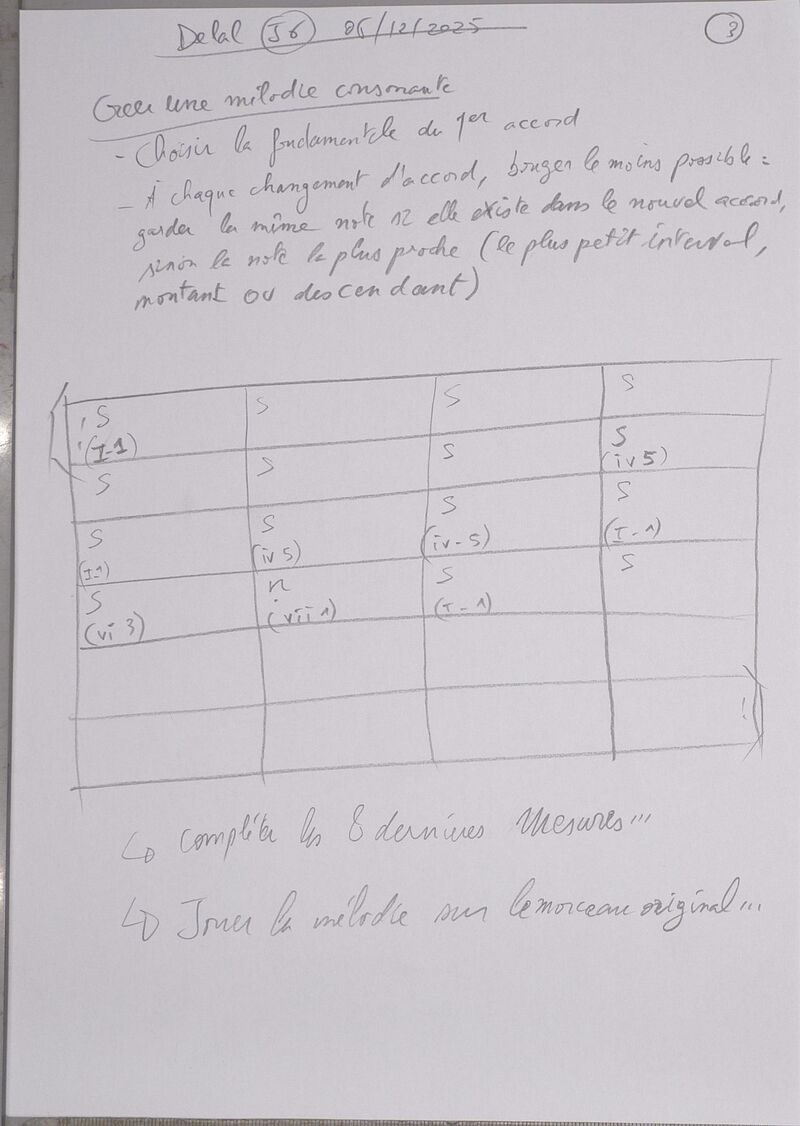 Delal J6 06/12/2025 3
Créer une mélodie consonante
- Choisir la fondamentale du 1er accord
- À chaque changement d'accord, bouger le moins possible :
garder la même note si elle existe dans le nouvel accord,
sinon la note la plus proche (le plus petit interval,
montant ou descendant)
S S S S
(I-1)
S S S S
(iv 5)
S S S S
(I-1) (iv 5) (iv-5) (I-1)
S n S S
(vi 3) (vii 1) (I-1)
↳ compléter les 8 dernières mesures...
↳ Jouer la mélodie sur le morceau original...